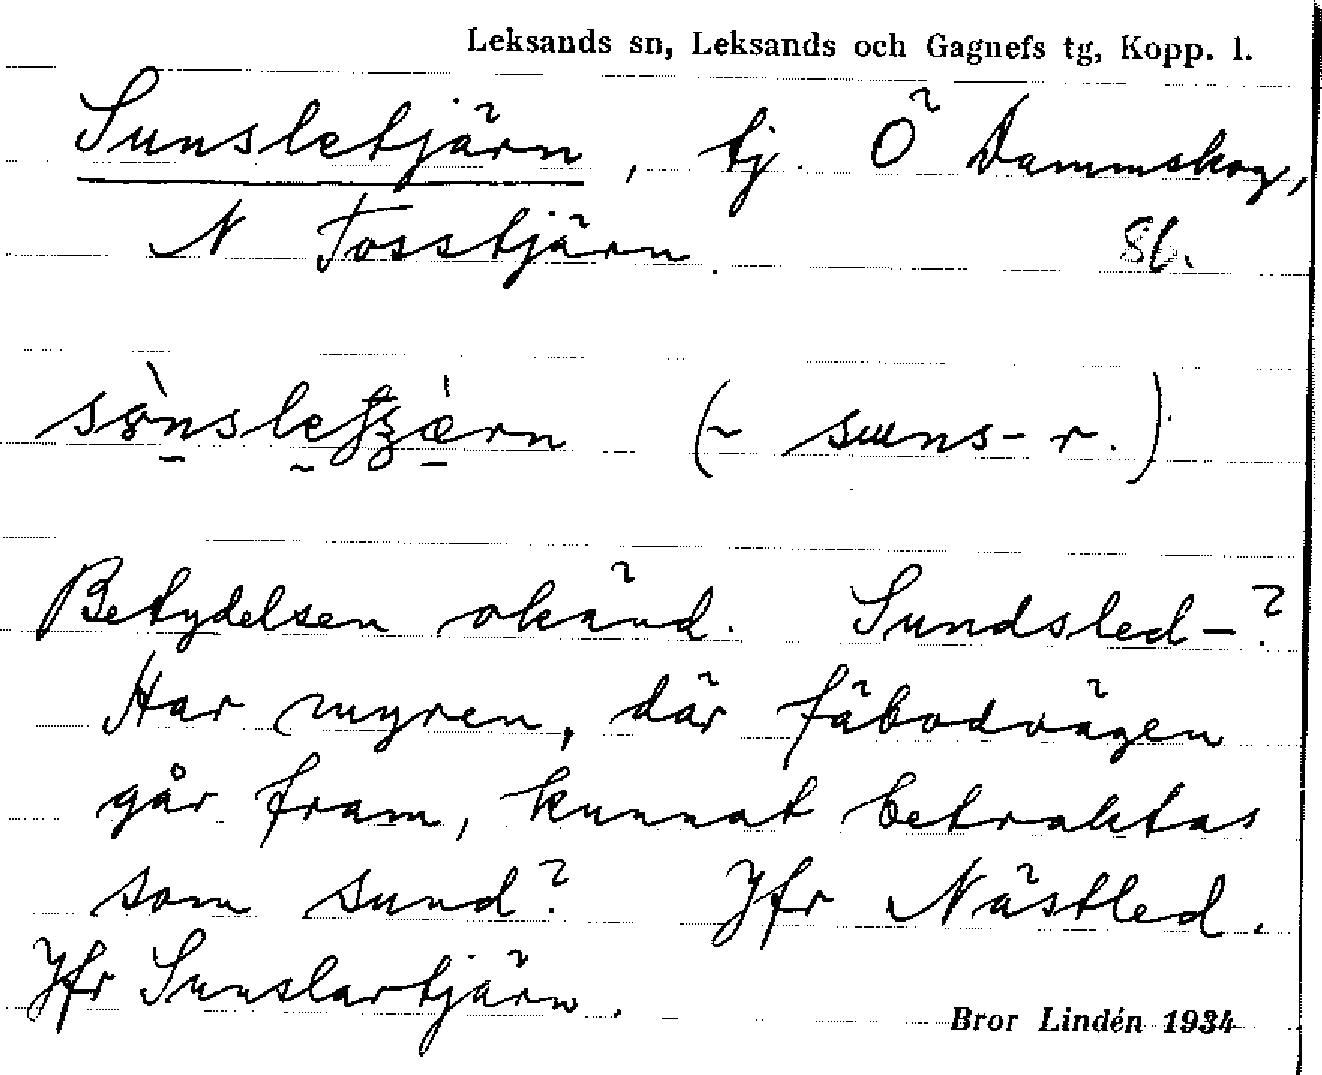 Leksands sn, Leksands och Gagnefs tg, Kopp. l.
Sunsletjärn, tj. Ö Dammskog,
N Tosstjärn. Sb.
(~ swns- r.)
Betydelsen okänd. Sundsled-?
Har myren, där fäbodvägen
går fram, kunnat betraktas
som sund? Jfr Nästled.
Jfr Sunslartjärn.
Bror Lindén 1934